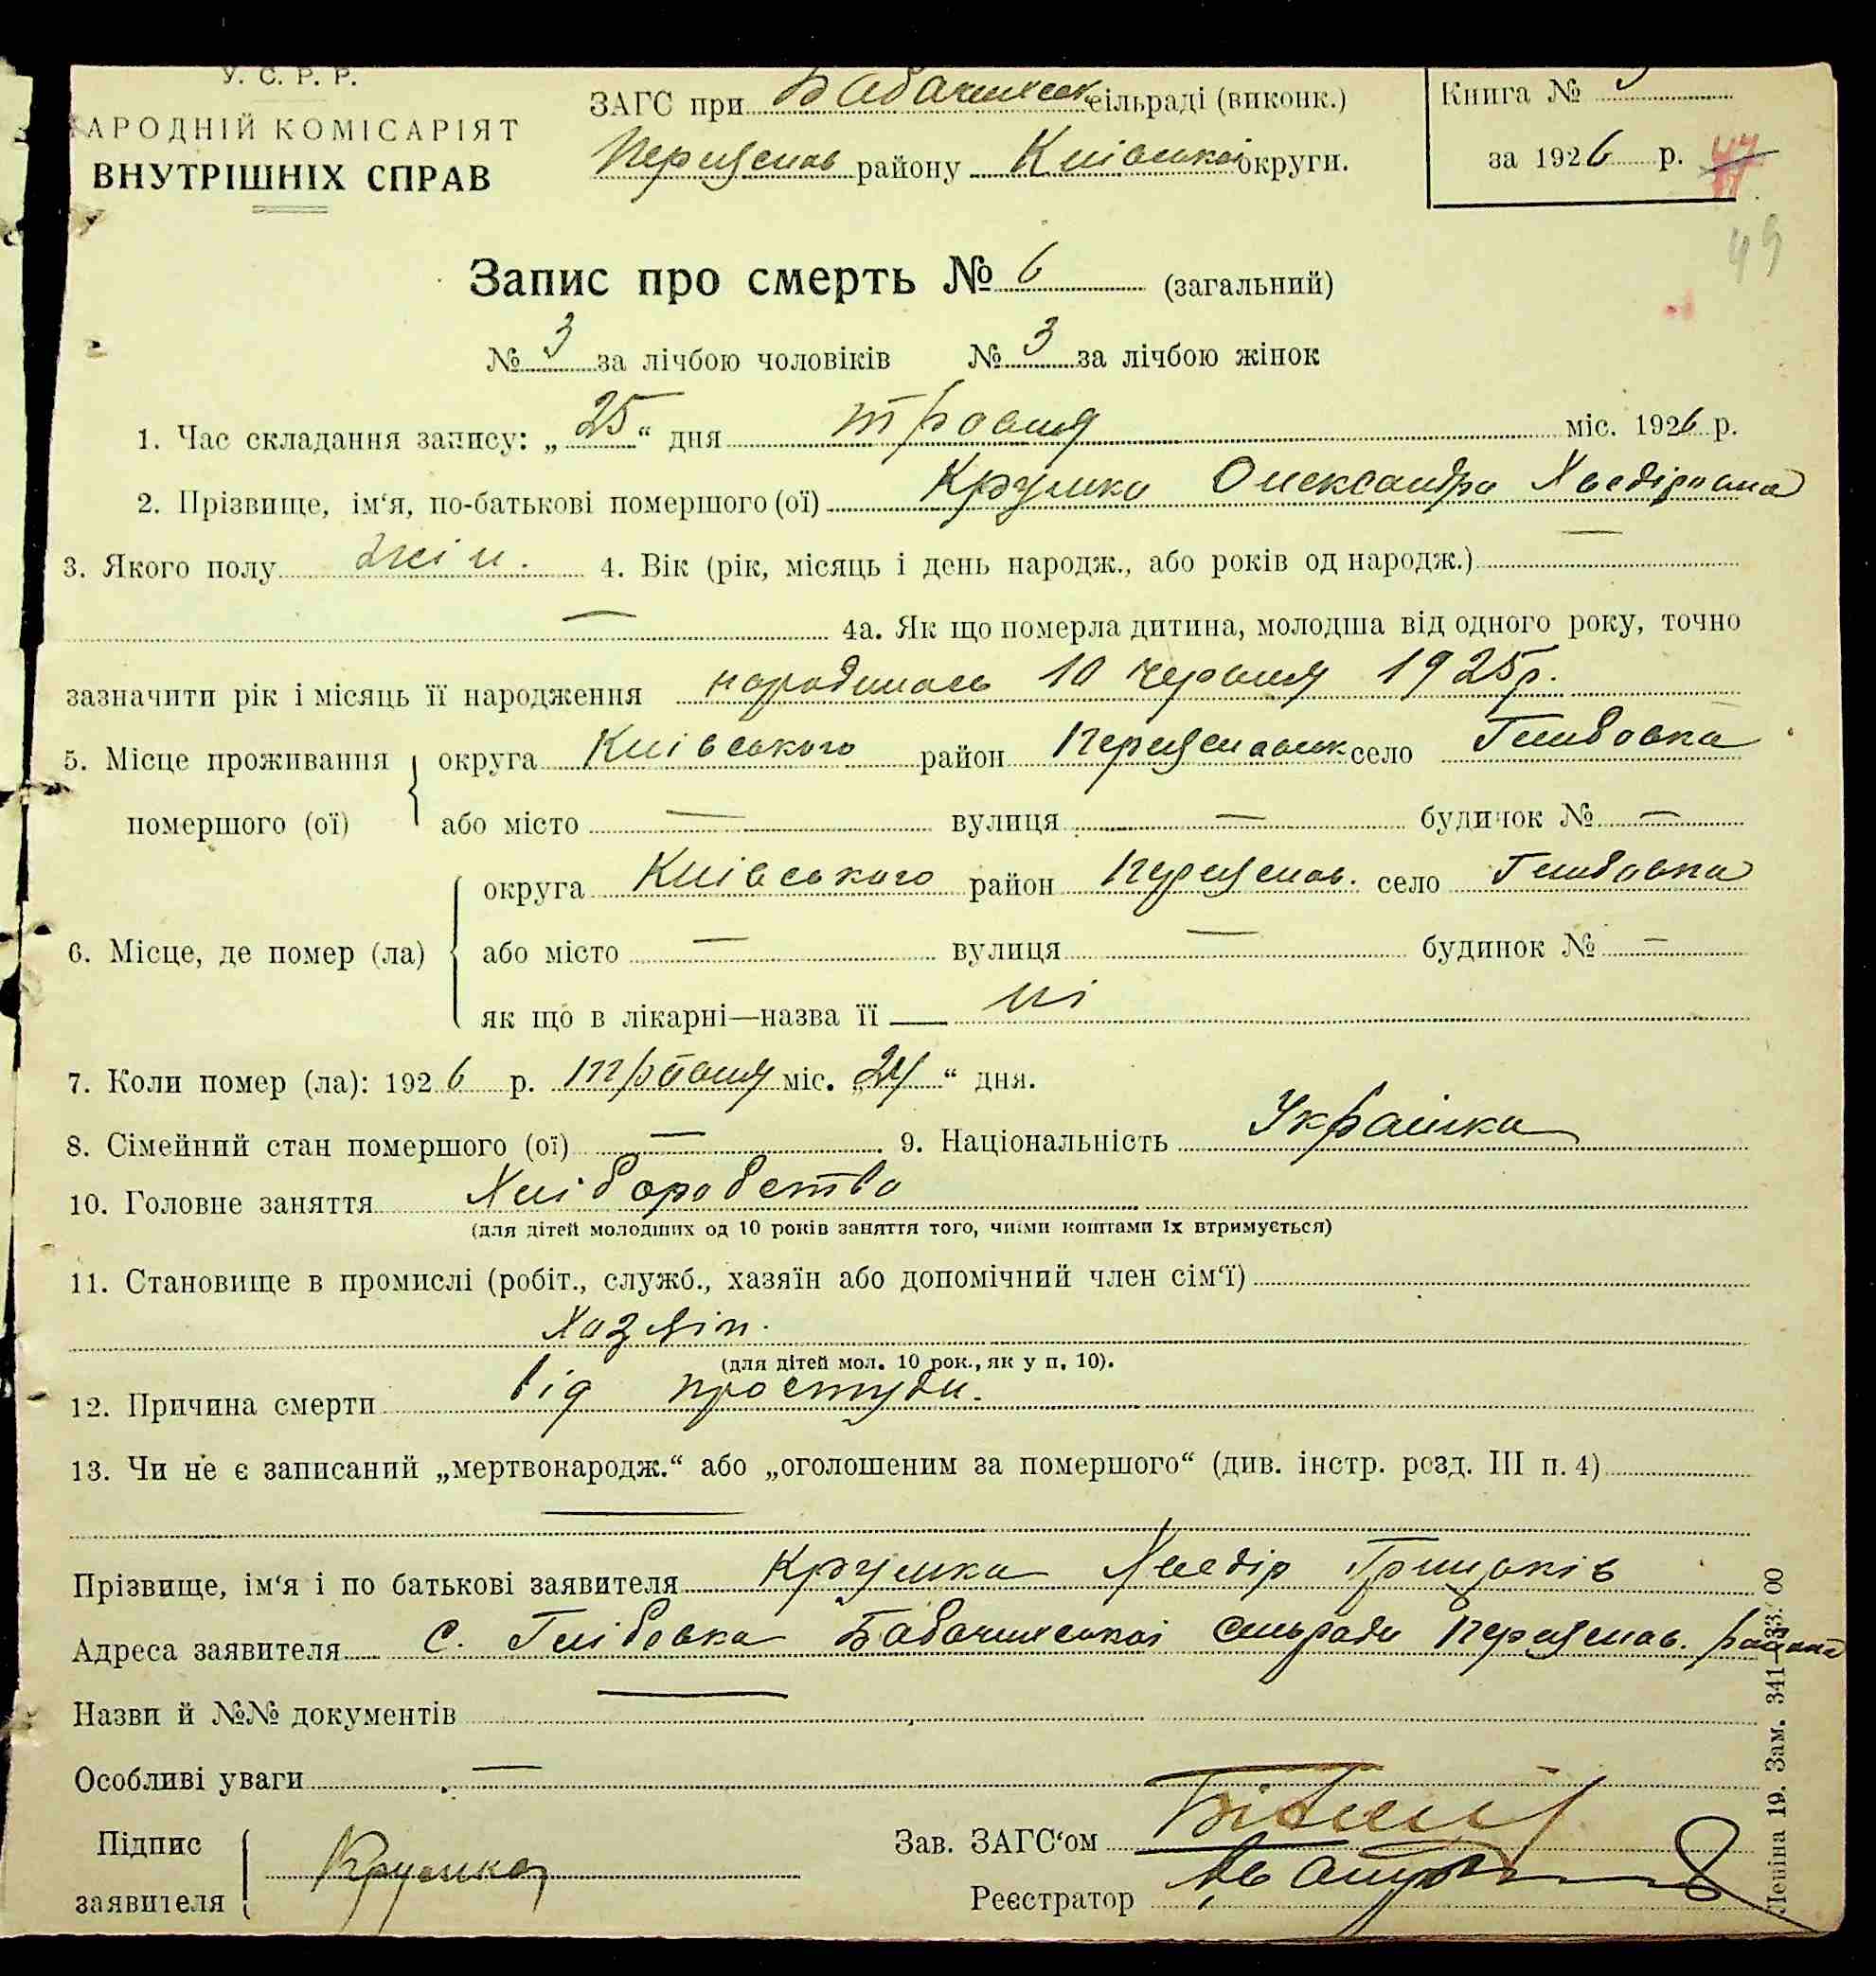 У. С. Р. Р.
АРОДНІЙ КОМІСАРІЯТ
ВНУТРІШНІХ СПРАВ
ЗАГС при сільраді (виконк.)
району Київської округи.
Книга №
за 1926 р. 47
49
Запис про смерть № 6 (загальний)
№ 3 за лічбою чоловіків № 3 за лічбою жінок
1. Час складання запису: „25“ дня травня міс. 1926 р.
2. Прізвище, ім‘я, по-батькові помершого (ої) Олександра Хведірівна
3. Якого полу жін. 4. Вік (рік, місяць і день народж., або років од народж.) —
— 4а. Як що померла дитина, молодша від одного року, точно
зазначити рік і місяць її народження народилась 10 червня 1925 р.
5. Місце проживання округа Київського район село
помершого (ої) або місто — вулиця — будинок № —
округа Київського район село
6. Місце, де помер (ла) або місто — вулиця — будинок № —
як що в лікарні—назва її — ні
7. Коли помер (ла): 1926 р. травня міс. „24“ дня.
8. Сімейний стан помершого (ої) — 9. Національність Українка
10. Головне заняття Хліборобство
(для дітей молодших од 10 років заняття того, чиїми коштами їх втримується)
11. Становище в промислі (робіт., служб., хазяїн або допомічний член сім‘ї)
Хазяїн.
(для дітей мол. 10 рок., як у п. 10).
12. Причина смерти від простуди.
13. Чи не є записаний „мертвонародж.“ або „оголошеним за помершого“ (див. інстр. розд. III п. 4)
—
Прізвище, ім‘я і по батькові заявителя Хведір
Адреса заявителя с. Глібовка
Назви й №№ документів —
Особливі уваги —
Підпис
заявителя
Зав. ЗАГС‘ом
Реєстратор
Леніна 19. Зам. 341—33.00